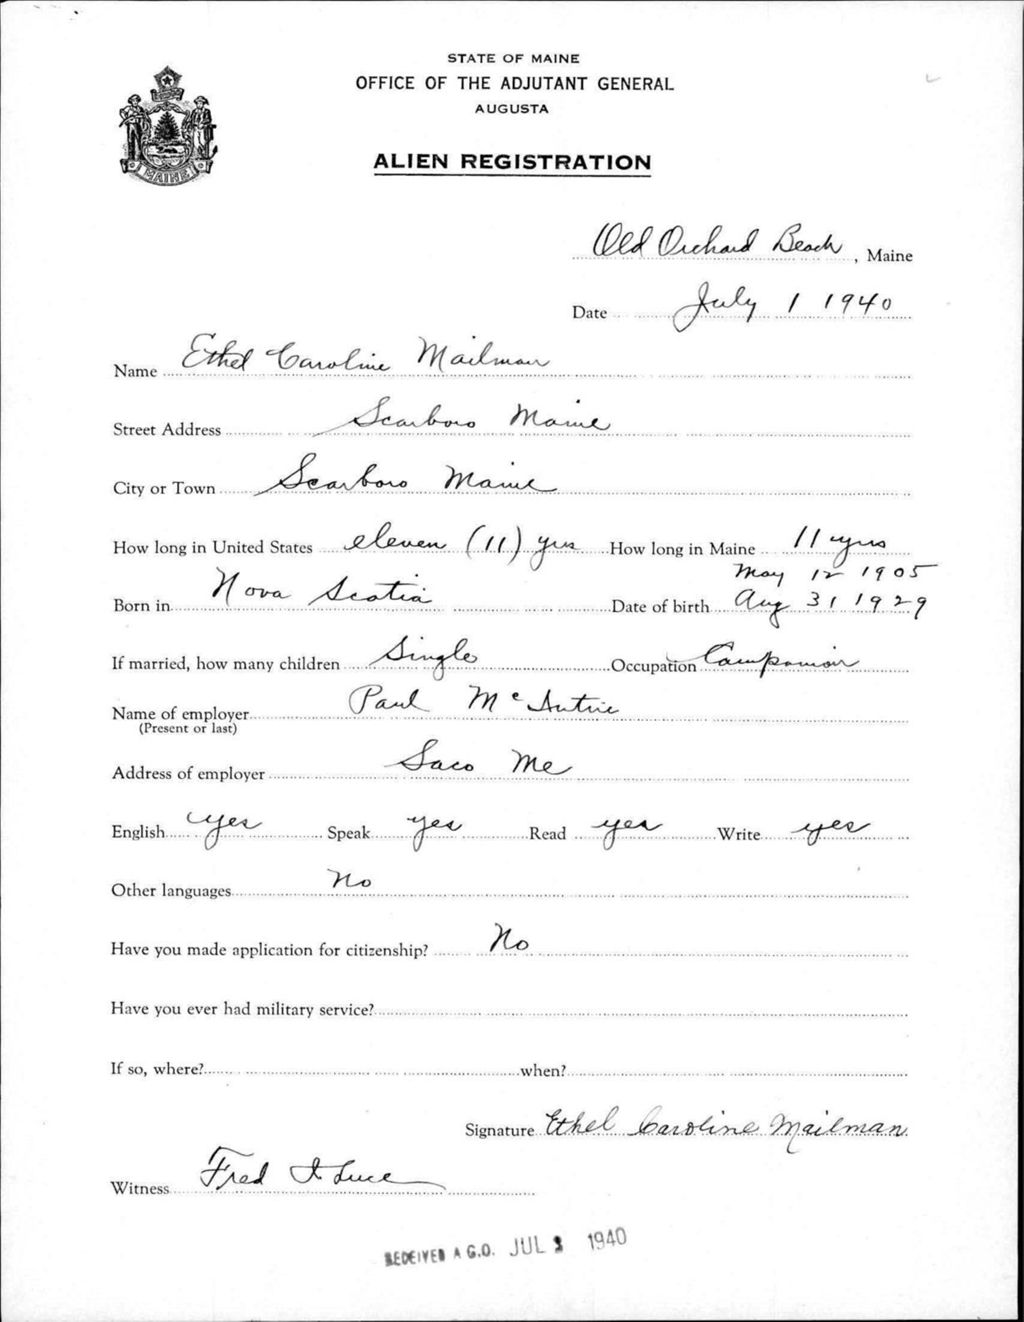 STATE OF MAINE
OFFICE OF THE ADJUTANT GENERAL
AUGUSTA
MAINE
ALIEN REGISTRATION
Old Orchard Beach, Maine
Date July 1 1940
Name Ethel Caroline Mailman
Street Address Scarboro Maine
City or Town Scarboro Maine
How long in United States eleven (11) yrs How long in Maine 11 yrs
May 12 1905
Born in Nova Scotia Date of birth Aug 31 1929
If married, how many children Single Occupation Companion
Name of employer Paul
(Present or last)
Address of employer Saco Me
English yes Speak yes Read yes Write yes
Other languages No
Have you made application for citizenship? No
Have you ever had military service?
If so, where? when?
Signature Ethel Caroline Mailman
Witness Fred I Luce
RECEIVED A.G.O. JUL 1940